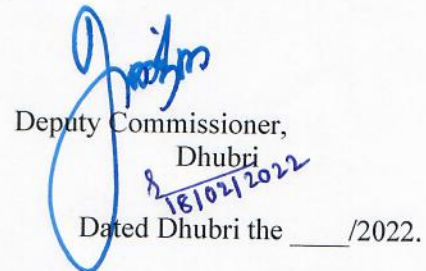 Deputy Commissioner,
Dhubri
18/02/2022
Dated Dhubri the ____/2022.